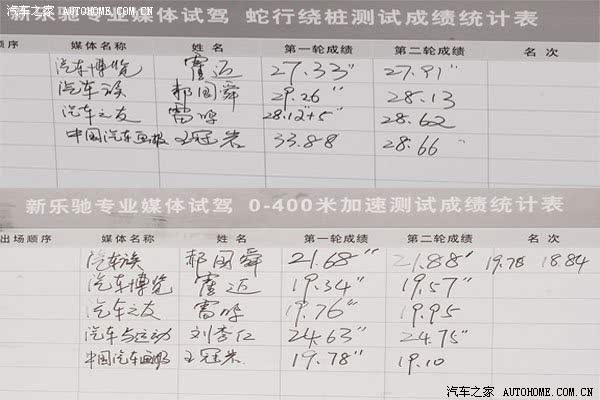 汽车之家 AUTOHOME.COM.CN
新乐驰专业媒体试驾 蛇行绕桩测试成绩统计表
顺序 媒体名称 姓名 第一轮成绩 第二轮成绩 名次
汽车博览 霍迈 27.33" 27.91"
汽车族 郝国舜 29.26" 28.13
汽车之友 雷鸣 28.12"+5" 28.62
中国汽车画报 王冠 33.88 28.66
新乐驰专业媒体试驾 0-400米加速测试成绩统计表
出场顺序 媒体名称 姓名 第一轮成绩 第二轮成绩 名次
汽车族 郝国舜 21.68" 21.88" 19.78 18.84
汽车博览 霍迈 19.34" 19.57"
汽车之友 雷鸣 19.76" 19.95
汽车与运动 刘李仁 24.63" 24.75"
中国汽车画报 王冠 19.78" 19.10
汽车之家 AUTOHOME.COM.CN